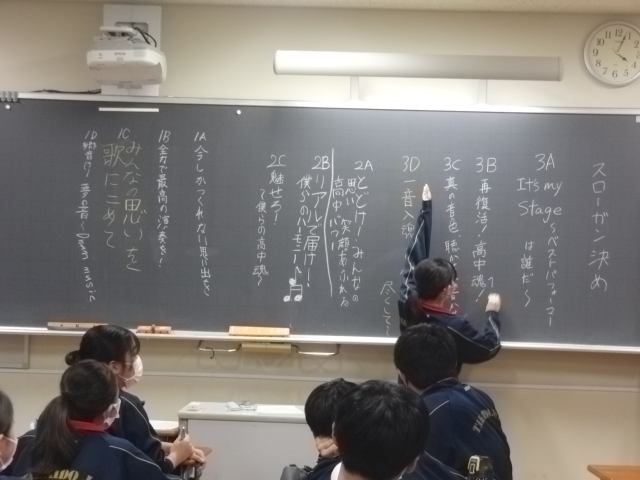 スローガン決め
3A
It's my
Stage
～ベストパフォーマー
は誰だ～
3B
再復活！高中魂！
3C
真の音色、聴か
3D
一音入魂
尽くして～
2A
とどけ！みんなの
思い、笑顔あふれる
高中パワー
2B
リアルで届け！
僕らのハーモニー
2C
魅せろ！
～僕らの高中魂～
1A
今しかつくれない思い出を
1B
全力で最高の演奏を！
1C
みんなの思いを
歌にこめて
1D